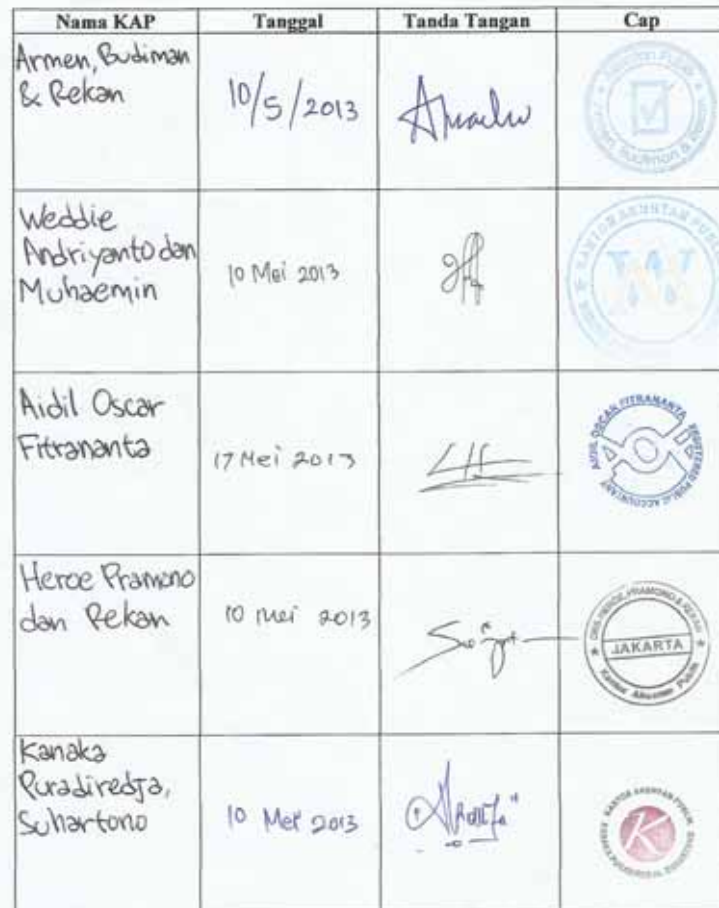 Nama KAP Tanggal Tanda Tangan Cap
Armen, Budiman
& Rekan
10/5/2013
Akuntan Publik
Armen, Budiman & Rekan
Weddie
Andriyanto dan
Muhaemin
10 Mei 2013
KANTOR AKUNTAN PUBLIK
Aidil Oscar
Fitrananta
17 Mei 2013
AIDIL OSCAR FITRANANTA
REGISTERED PUBLIC ACCOUNTANT
Heroe Pramono
dan Rekan
10 Mei 2013
DRS. HEROE, PRAMONO & REKAN
JAKARTA
Kantor Akuntan Publik
Kanaka
Puradiredja,
Suhartono
10 Mei 2013
KANTOR AKUNTAN PUBLIK
K